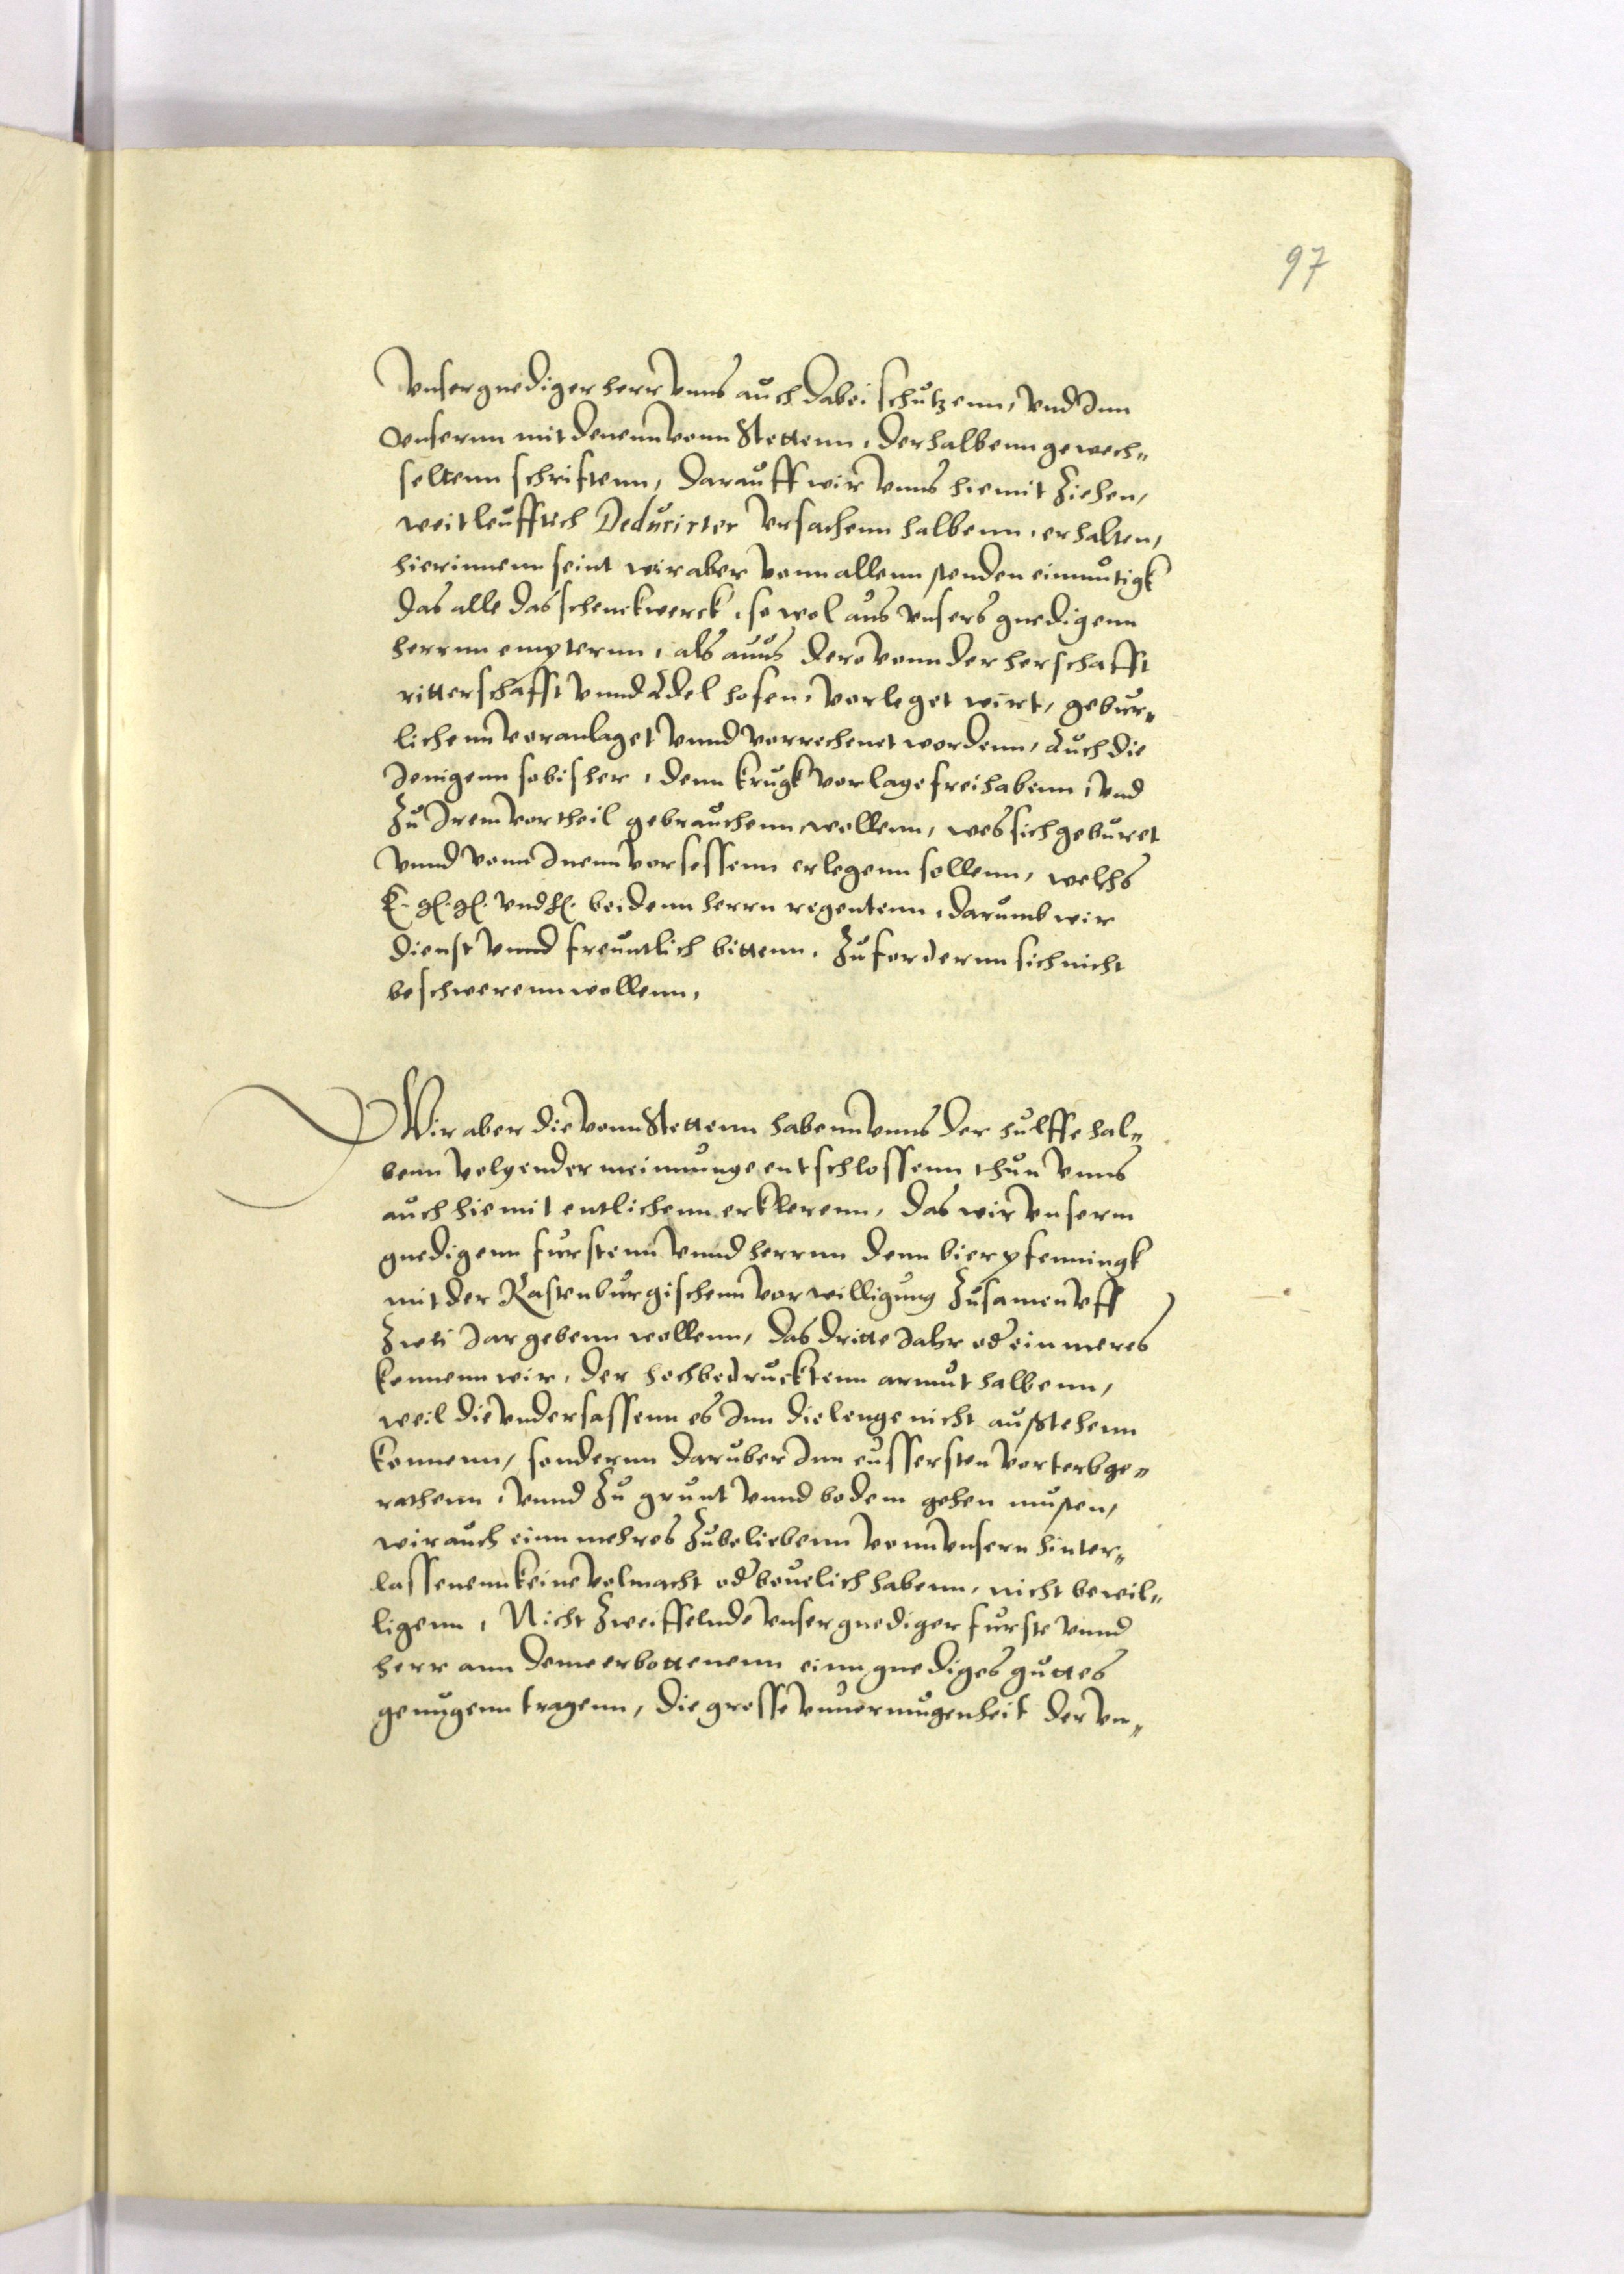 97
Vnser gnediger herr vnns auch dabei schutzenn, vnd Inn
vnsernn mit denenn vonn Stettenn, derhalbenn gewech„
seltenn schriftenn, darauff wir vnns hiemit Ziehen,
weitleufftich Deducirter vrsachenn halbenn, erhalten,
hierinnenn seint wir aber vonn allenn stenden einmutigk
das alle das schenckwerck, so wol aus vnsers gnedigenn
herrnn empternn, als auus dero vonn der herschafft
ritterschafft vnnd Adel hofen, vorleget wirt, gebur„
lichenn voranlaget vnnd vorrechenet wordenn, Auch die
Jenigenn so bisher, denn krugk vorlage frei habenn, vnd
Zu Irem vortheil gebrauchenn wollenn, wes sich geburet
vnnd vonn Inenn vorsessenn erlegenn sollenn, welchs
E. gl. gl. vnd hl. bei denn herrn regentenn, darumb wir
dienst vnnd freuntlich bittenn, Zufordernn sich nicht
beschwerenn wollenn,
Wir aber die vonn Stettenn habenn vnns der hulffe hal„
benn volgender meinunge entschlossenn thun vnns
auch hiemit entlichenn erklerenn, das wir vnserm
gnedigenn furstenn vnnd herrnn denn bierpfenningk
mit der Rastenburgischenn vorwilligung Zusamen vff
Zwei Jar gebenn wollenn, das dritte Jahr od ein meres
kennenn wir, der hochbedrucktenn armut halbenn,
weil die vndersassenn es Inn die lenge nicht außstehenn
konnenn, sondernn daruber Inn eussersten vorterb ge„
rathenn, vnnd Zu grunt vnnd bodem gehen musten,
wir auch einn mehres Zubeliebenn vonn vnsern hinter„
lassenenn keine volmacht od beuelich habenn, nicht bewil„
ligenn, Nicht Zweiffelnde vnser gnediger furste vnnd
herr ann deme erbottenenn einn gnediges guttes
genugenn tragenn, die grosse vnuermugenheit der vn„